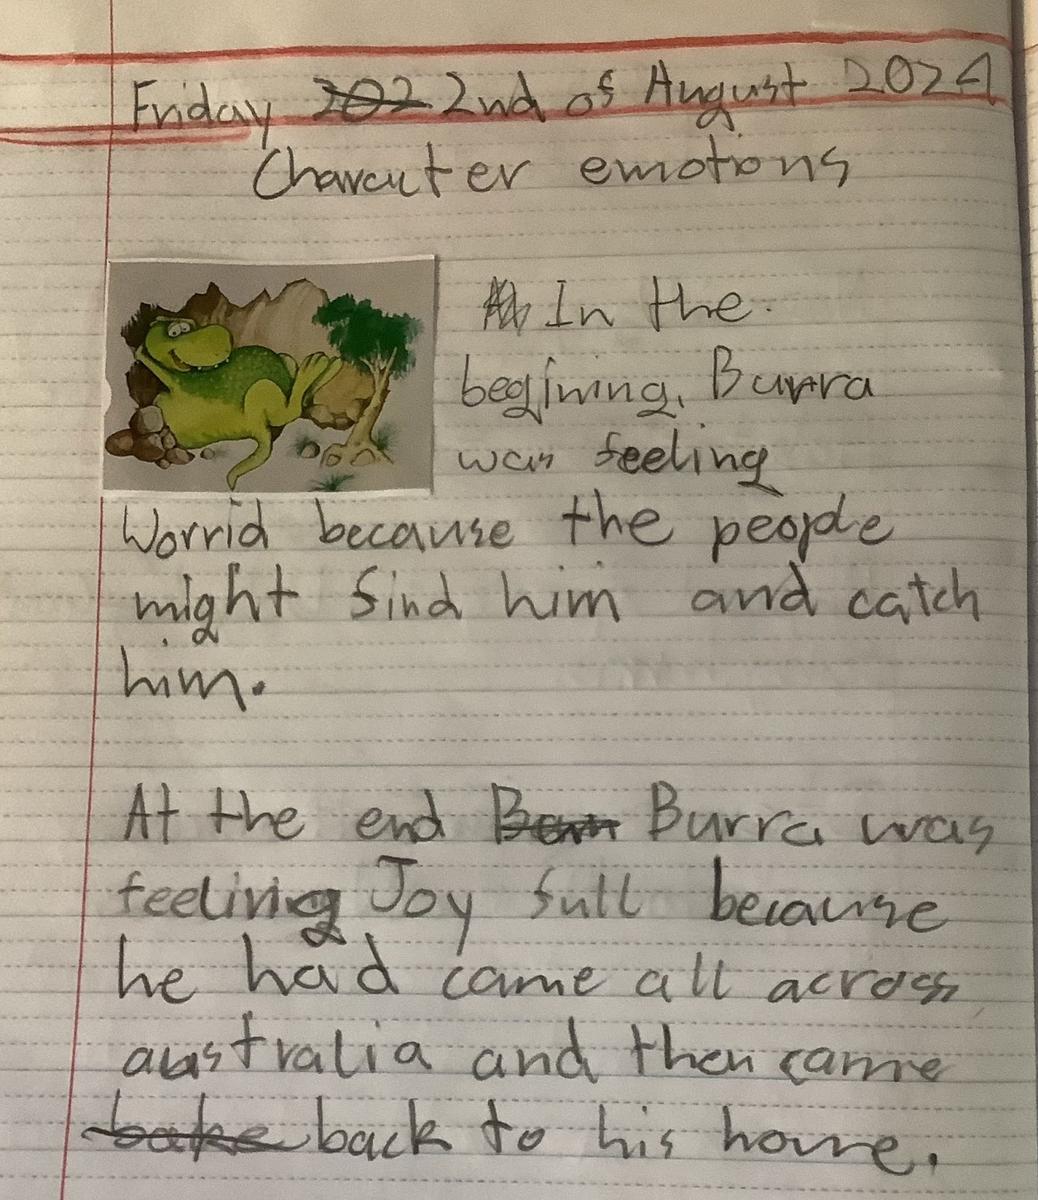 Friday 2nd of August 2024
Charcuter emotions
In the
begining, Burra
was feeling
Worrid because the people
might find him and catch
him.
At the end Burra was
feeling Joy full because
he had came all across
australia and then came
back to his home.